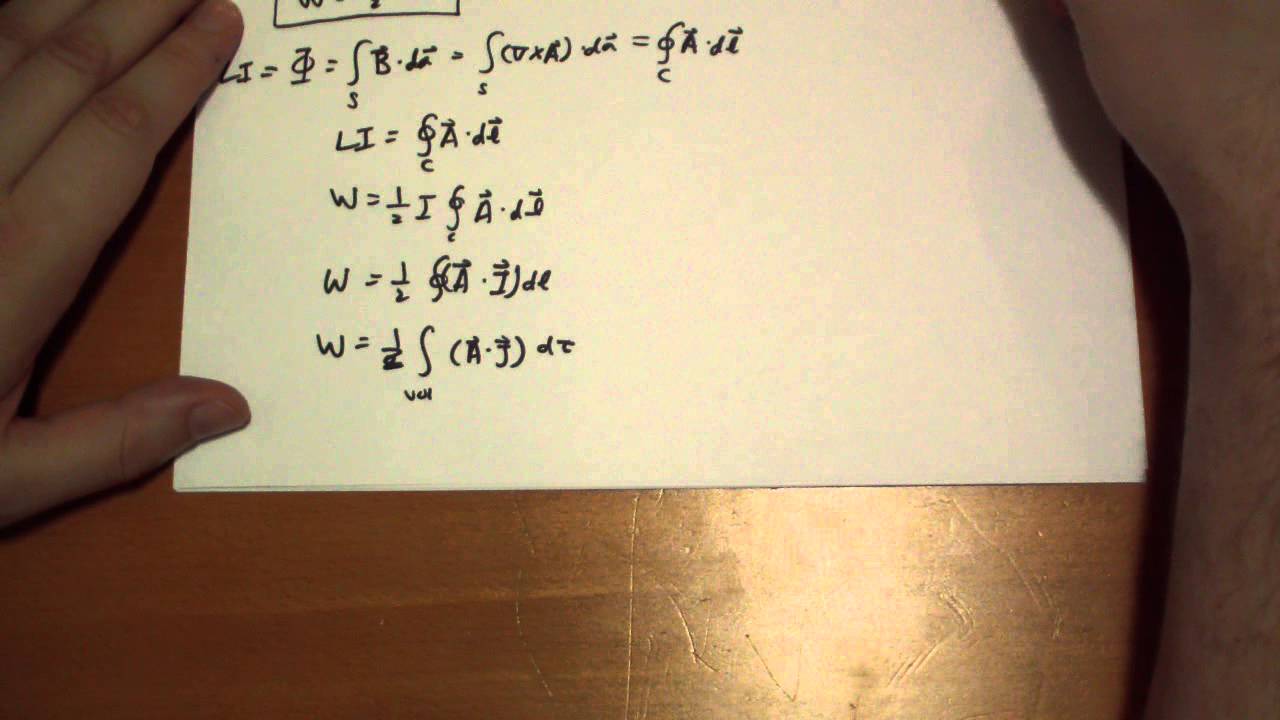 LI = Φ = ∫_S B⃗ · da⃗ = ∫_S (∇ × A⃗) · da⃗ = ∮_C A⃗ · dl⃗
LI = ∮_C A⃗ · dl⃗
W = 1/2 I ∮_C A⃗ · dl⃗
W = 1/2 ∮(A⃗ · I⃗)dl
W = 1/2 ∫_vol (A⃗ · J⃗) dτ